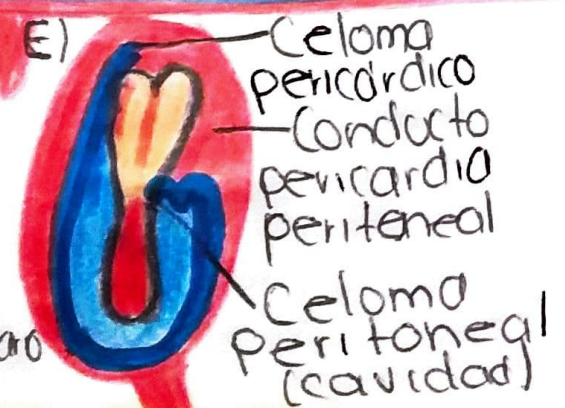 E)
Celoma
pericárdico
Conducto
pericardio
periteneal
Celoma
peritoneal
(cavidad)